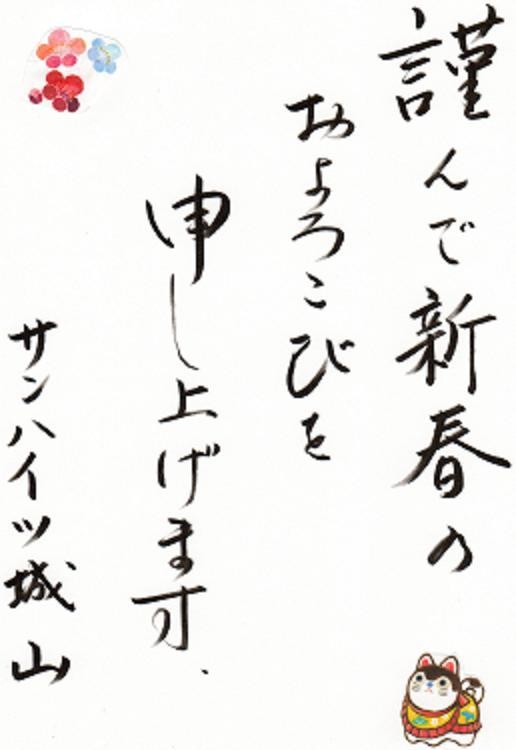 謹んで新春の
およろこびを
申し上げます、
サンハイツ城山